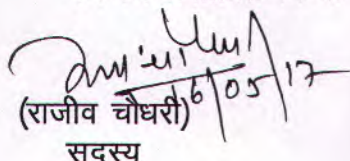 16/05/17
(राजीव चौधरी)
सदस्य